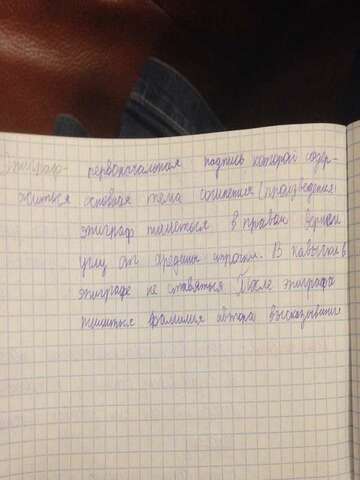 Эпиграф- первоначальная надпись которой содер-
житься основная тема сочинения (произведения)
эпиграф пишеться в правом верхнем
углу от средины строчки. В кавычки в
эпиграфе не ставяться. После эпиграфа
пишиться фамилия автора высказывание